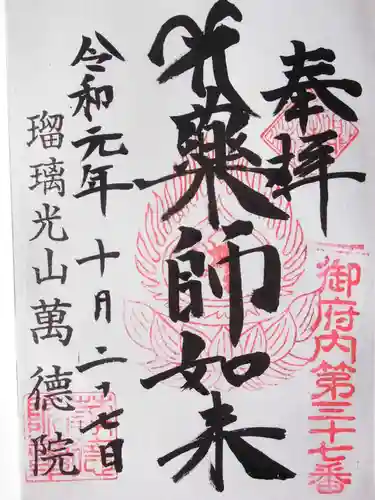 奉拝
御府内第三十七番
薬師如来
令和元年十月二十七日
瑠璃光山萬德院